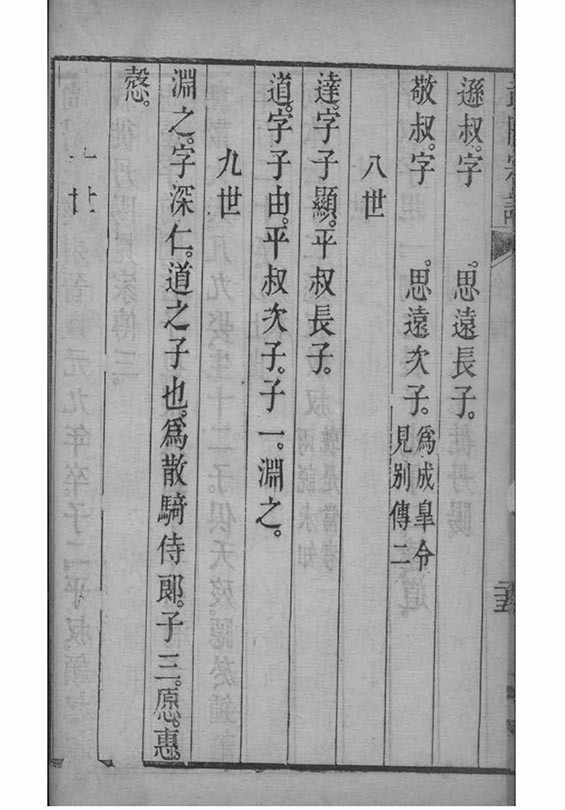 遜叔。字　　。思遠長子。
敬叔。字　　。思遠次子。為成皐令見別傳二
八世
達。字子顯。平叔長子。
道。字子由。平叔次子。子一。淵之。
九世
淵之。字深仁。道之子也。為散騎侍郎。子三。愿。惠。
愨。
十世